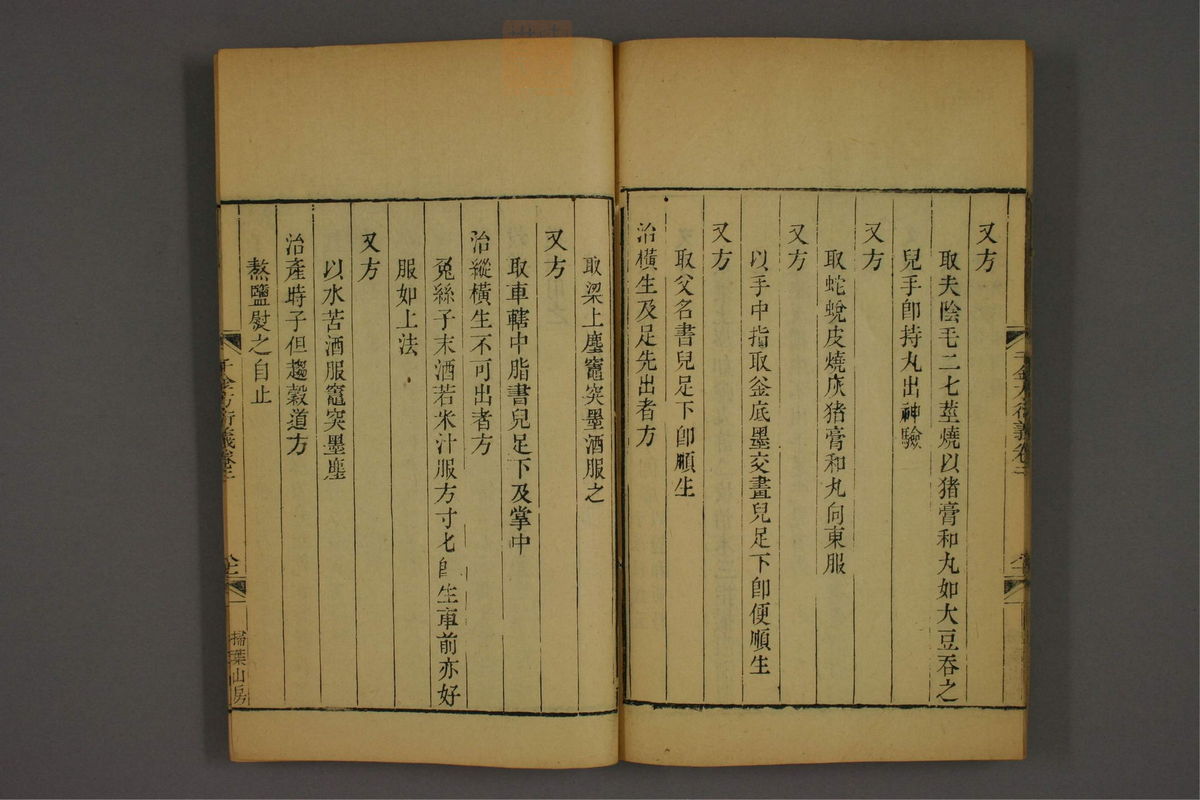 又方
取夫陰毛二七莖燒以猪膏和丸如大豆吞之
兒手卽持丸出神驗
又方
取蛇蛻皮燒灰猪膏和丸向東服
又方
以手中指取釜底墨交畫兒足下卽便順生
又方
取父名書兒足下卽順生
治橫生及足先出者方
千金方衍義卷二
取梁上塵竈突墨酒服之
又方
取車轄中脂書兒足下及掌中
治縱橫生不可出者方
兔絲子末酒若米汁服方寸匕卽生車前亦好
服如上法
又方
以水苦酒服竈突墨塵
治產時子但趨穀道方
熬鹽熨之自止
千金方衍義卷二
掃葉山房